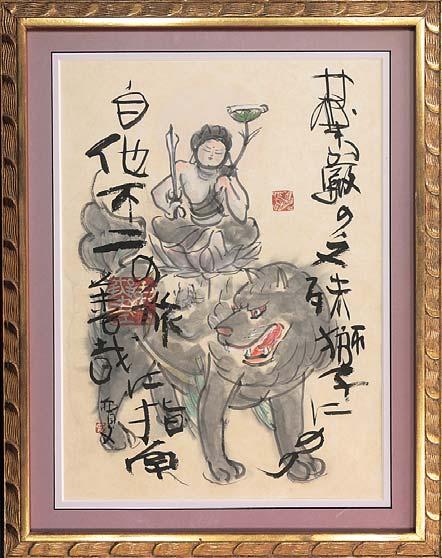 華巌の文殊獅子にの
自他不二
の旅に指南
善哉